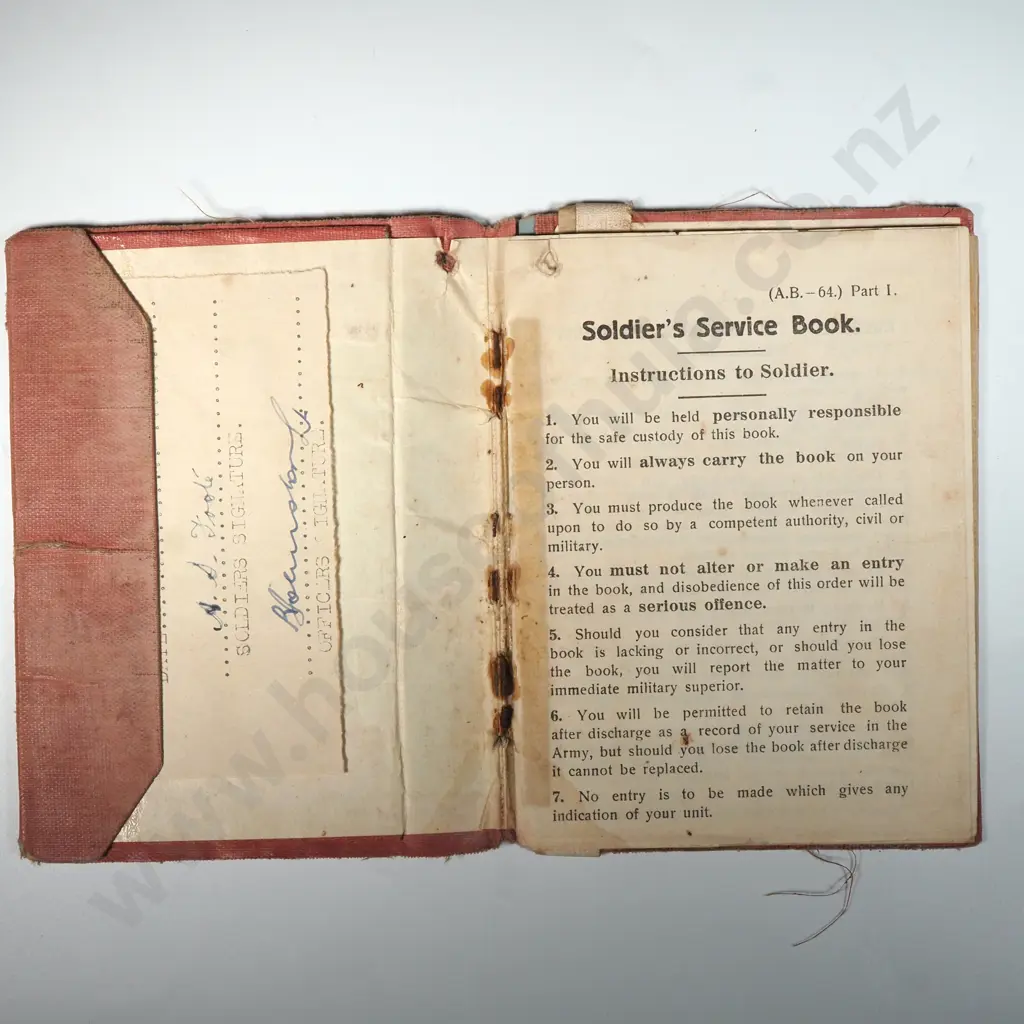 A. S. Toole
SOLDIERS SIGNATURE.
OFFICERS SIGNATURE.
(A.B.–64.) Part I.
Soldier's Service Book.
Instructions to Soldier.
1. You will be held personally responsible
for the safe custody of this book.
2. You will always carry the book on your
person.
3. You must produce the book whenever called
upon to do so by a competent authority, civil or
military.
4. You must not alter or make an entry
in the book, and disobedience of this order will be
treated as a serious offence.
5. Should you consider that any entry in the
book is lacking or incorrect, or should you lose
the book, you will report the matter to your
immediate military superior.
6. You will be permitted to retain the book
after discharge as a record of your service in the
Army, but should you lose the book after discharge
it cannot be replaced.
7. No entry is to be made which gives any
indication of your unit.
www.houseofnulu.co.nz